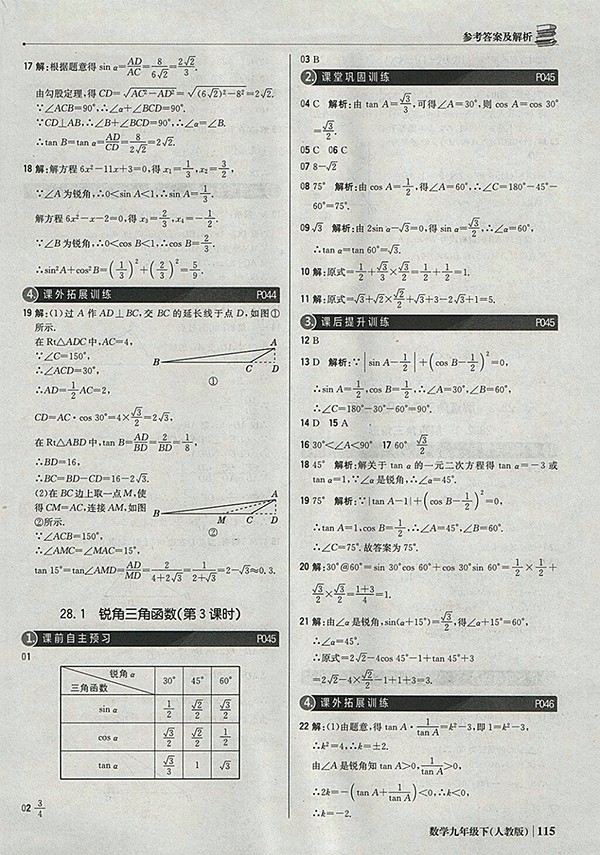 参考答案及解析
17 解:根据题意得 sin α=AD/AC=8/(6√2)=2√2/3.
由勾股定理,得 CD=√(AC²-AD²)=√((6√2)²-8²)=2√2.
∵∠ACB=90°,∴∠α+∠BCD=90°.
∵CD⊥AB,∴∠B+∠BCD=90°,∴∠α=∠B.
∴tan B=tan α=AD/CD=8/(2√2)=2√2.
18 解:解方程 6x²-11x+3=0,得 x₁=1/3,x₂=3/2,
∵∠A 为锐角,∴0<sin A<1,∴sin A=1/3.
解方程 6x²-x-2=0,得 x₃=2/3,x₄=-1/2.
∵∠B 为锐角,∴0<cos B<1,∴cos B=2/3.
∴sin²A+cos²B=(1/3)²+(2/3)²=5/9.
4. 课外拓展训练 P044
19 解:(1)过 A 作 AD⊥BC,交 BC 的延长线于点 D,如图①
所示.
在 Rt△ADC 中,AC=4,
∵∠C=150°,
∴∠ACD=30°,
∴AD=1/2 AC=2,
A
B C D
①
CD=AC·cos 30°=4×√3/2=2√3,
在 Rt△ABD 中,tan B=AD/BD=2/BD=1/8,
∴BD=16,
∴BC=BD-CD=16-2√3.
(2)在 BC 边上取一点 M,使
得 CM=AC,连接 AM,如图
②所示.
∵∠ACB=150°,
∴∠AMC=∠MAC=15°,
A
B M C D
②
tan 15°=tan∠AMD=AD/MD=2/(4+2√3)=1/(2+√3)=2-√3≈0.3.
28.1 锐角三角函数(第 3 课时)
1. 课前自主预习 P045
01
锐角 α 三角函数 30° 45° 60°
sin α 1/2 √2/2 √3/2
cos α √3/2 √2/2 1/2
tan α √3/3 1 √3
02 3/4
03 B
2. 课堂巩固训练 P045
04 C 解析:由 tan A=√3/3,可得∠A=30°,则 cos A=cos 30°
=√3/2.
05 C 06 C
07 8-√2
08 75° 解析:由 cos A=1/2,得∠A=60°,∴∠C=180°-45°-
60°=75°.
09 √3 解析:由 2sin α-√3=0,得 sin α=√3/2,∴∠α=60°,
∴tan α=tan 60°=√3.
10 解:原式=1/2+√3/3×√3/2=1/2+1/2=1.
11 解:原式=√3+√2×√2/2+√3+3-2√3+1=5.
3. 课后提升训练 P045
12 B
13 D 解析:∵|sin A-1/2|+(cos B-1/2)²=0,
∴sin A=1/2,cos B=1/2,∴∠A=30°,∠B=60°,
∴∠C=180°-30°-60°=90°.
14 D 15 A
16 30°<∠A<90° 17 60° √3/2
18 45° 解析:解关于 tan α 的一元二次方程得 tan α=-3 或
tan α=1,∵∠α 是锐角,∴∠α=45°.
19 75° 解析:∵|tan A-1|+(cos B-1/2)²=0,
∴tan A=1,cos B=1/2,∴∠A=45°,∠B=60°.
∴∠C=75°. 故答案为 75°.
20 解:30°@60°=sin 30°cos 60°+cos 30°sin 60°=1/2×1/2+
√3/2×√3/2=(1+3)/4=1.
21 解:由∠α 是锐角,sin(α+15°)=√3/2,得∠α+15°=60°,
∴∠α=45°.
∴原式=2√2-4cos 45°-1+tan 45°+3
=2√2-4×√2/2-1+1+3=3.
4. 课外拓展训练 P046
22 解:(1)由题意,得 tan A·1/tan A=k²-3,即 1=k²-3.
∴k²=4,∴k=±2.
由∠A 是锐角知 tan A>0,1/tan A>0,
∴2k=-(tan A+1/tan A)<0,∴k<0,
∴k=-2.
数学九年级下(人教版) 115